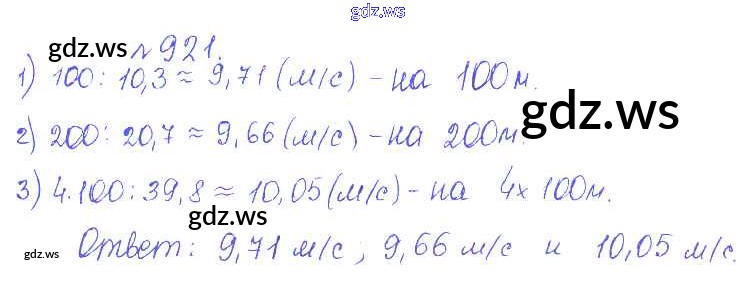 gdz.ws
gdz.ws № 921.
1) 100 : 10,3 ≈ 9,71 (м/с) - на 100 м.
gdz.ws
2) 200 : 20,7 ≈ 9,66 (м/с) - на 200 м.
3) 4·100 : 39,8 ≈ 10,05 (м/с) - на 4х100 м.
gdz.ws
gdz.ws Ответ: 9,71 м/с ; 9,66 м/с и 10,05 м/с.